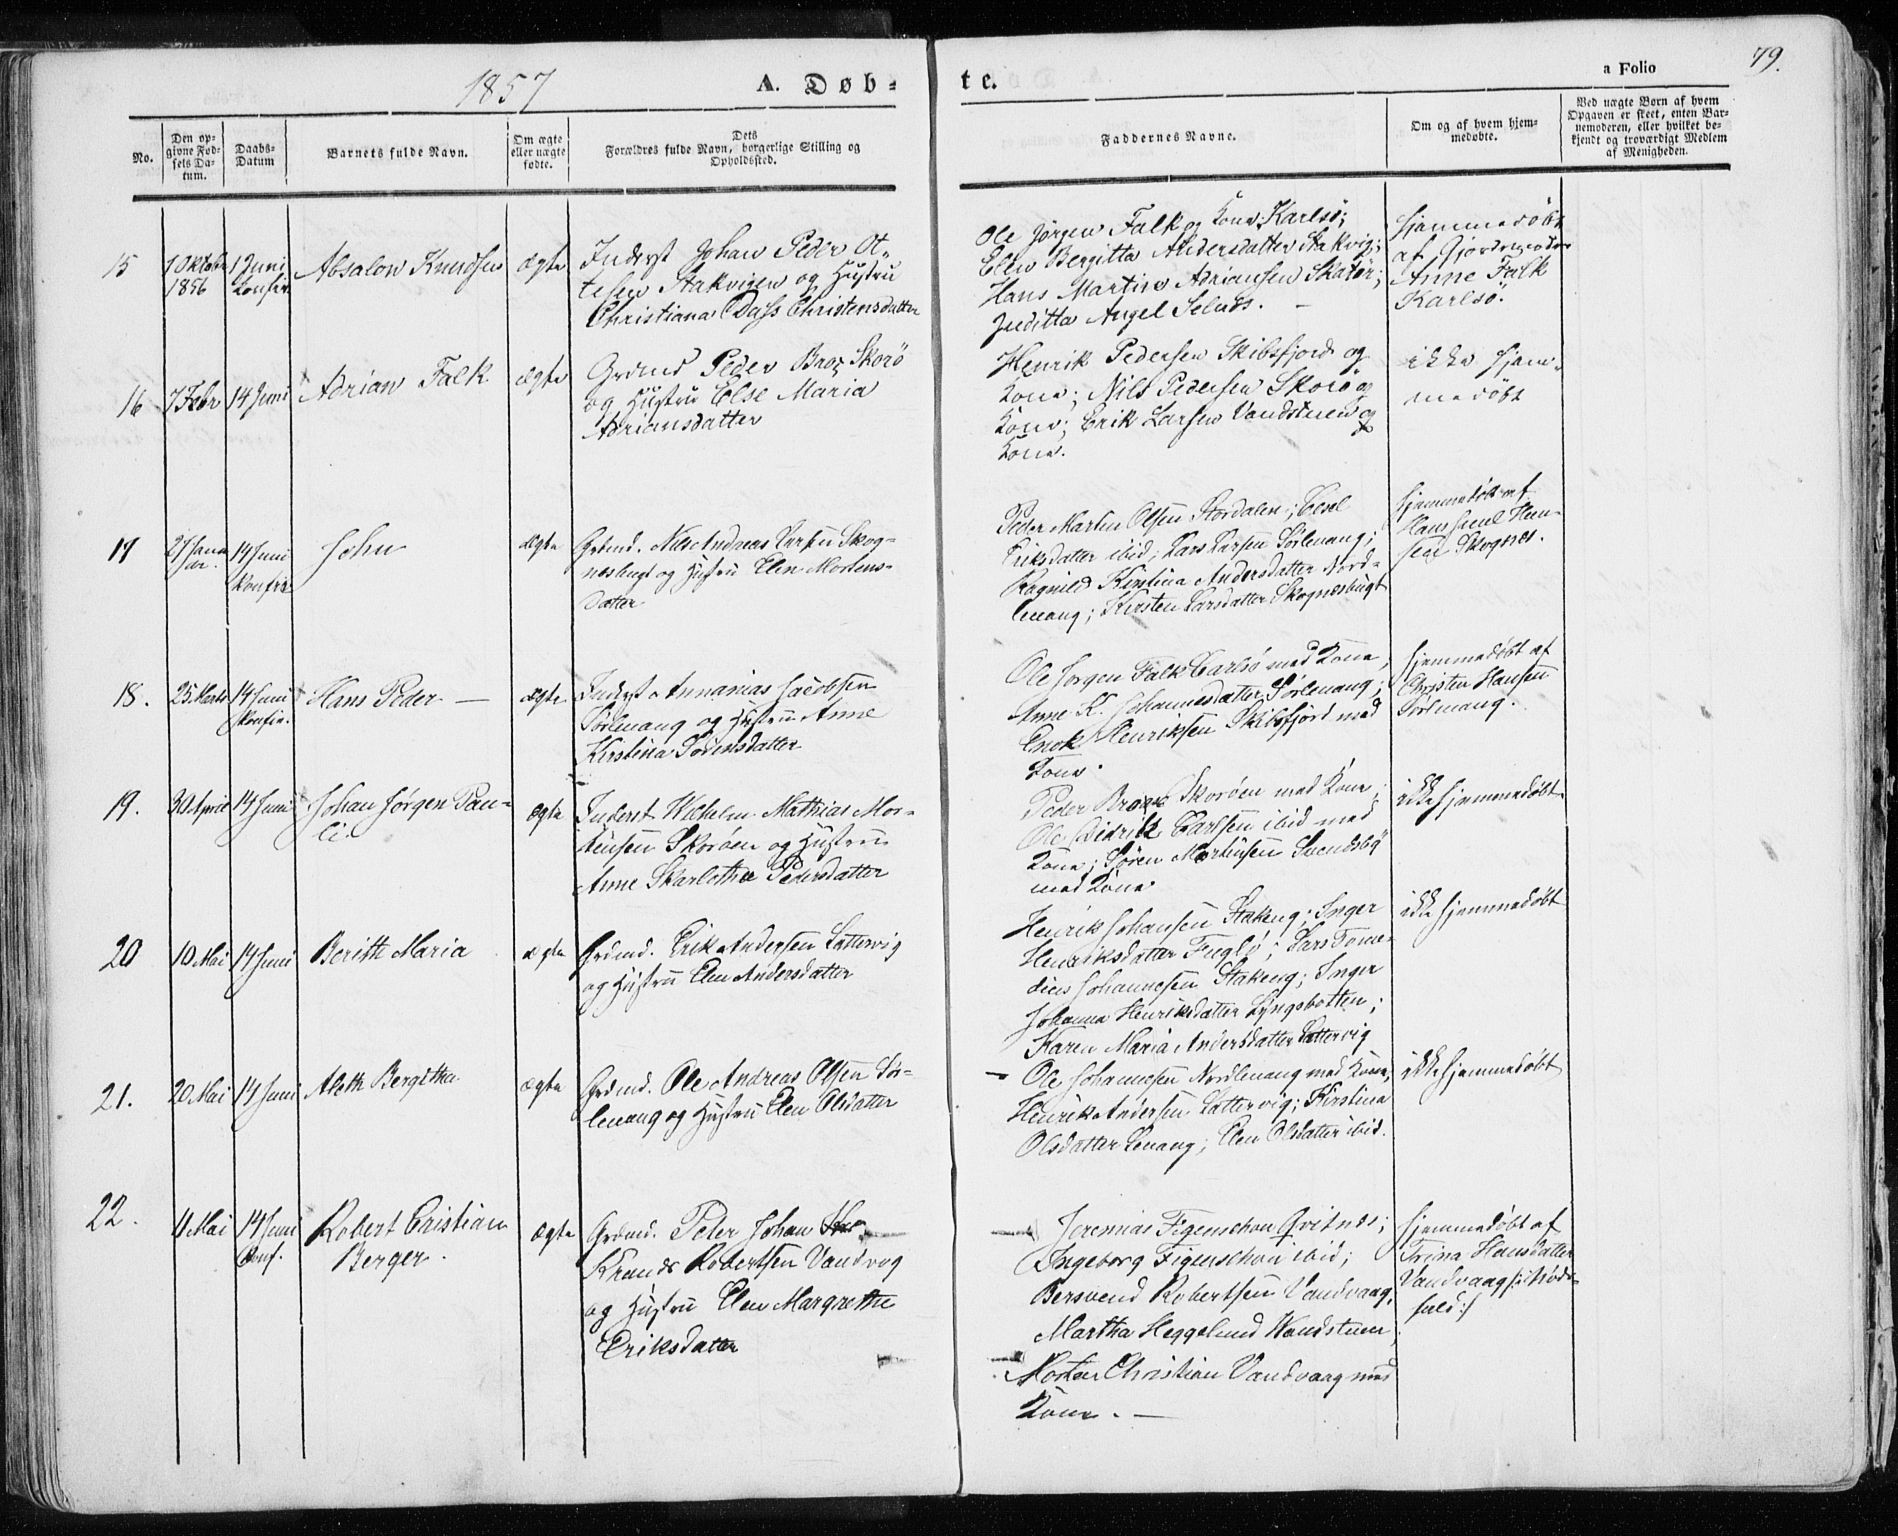 1857
A. Døb-
te.
a Folio
79.
No.
Den op-
givne Fød-
sels Da-
tum.
Daabs-
Datum
Barnets fulde Navn.
Om ægte
eller uægte
fødte.
Dets
Forældres fulde Navn, borgerlige Stilling og
Opholdssted.
Faddernes Navne.
Om og af hvem hjem-
medøbte.
Ved uægte Børn af hvem
Opgaven er skeet, enten Bar-
nemoderen, eller hvilket be-
kjendt og troværdigt Medlem
af Menigheden.
15
1856
Absalon Knudsen
ægte
Inderst Johan Peder Ot-
tesen Stakvigen og Hustru
Christiana Dass Christensdatter
Ole Jørgen Falk og Kone, Karlsö;
Elen Bergitta Andersdatter Stakvig;
Hans Martin Adriansen Skatør;
Juditta Angel Selnæs. –
Hjemmedøbt
af Gjordemoder
Anne Falk
Karlsö.
16
7 Febr
14 Juni
Adrian Falk
ægte
Grdmd Peder Brox Skorö
og Hustru Else Maria
Adriansdatter
Henrik Pedersen Skibsfjord og
Kone; Nils Pedersen Skorö og
Kone; Erik Larsen Vandstuen og
Kone.
ikke Hjem-
medøbt
17
14 Juni
Konfir.
John
ægte
Grdmd. Nils Andreas Larsen Skog-
nesbugt og Hustru Elen Mortens-
datter
Peder Martin Olsen Stordalen;
Eriksdatter ibid; Lars Larsen Sørlenang;
Ragnild Kirstina Andersdatter Nord-
lenang; Kirsten Larsdatter Skognesbugt
Hjemmedøbt af
Skognes.
18.
25 Marts
14 Juni
Konfir.
Hans Peder —
ægte
Inderst Annanias Jacobsen
Sørlenang og Hustru Anne
Kirstina Sörensdatter
Ole Jørgen Falk Carlsö med Kone,
Anne K. Johannesdatter Sørlenang;
Enok Henriksen Skibsfjord med
Kone.
Hjemmedøbt af
Christen Hansen
Sørlenang.
19.
30 April
14 Juni
Johan Jørgen Pau-
li.
ægte
Inderst Wilhelm Mathias Mor-
tensen Skoröen og Hustru
Anne Skarlotha Pedersdatter
Peder Brox Skoröen med Kone;
Ole Didrik Carlsen ibid med
Kone; Søren Mortensen Svendsby
med Kone
ikke Hjemmedøbt
20
10 Mai
14 Juni
Berith Maria
ægte
Grdmd. Erik Andersen Lattervig
og Hustru Elen Andersdatter
Henrik Johansen Stakeng; Inger
Henriksdatter Fuglö; Lars Tome-
dius Johannesen Stakeng; Inger
Johanna Henriksdatter Lyngsbotten;
Karen Maria Andersdatter Lattervig
ikke Hjemmedøbt
21.
20 Mai
14 Juni
Aleth Bergitha
ægte
Grdmd. Ole Andreas Olsen Sør-
lenang og Hustru Elen Olsdatter
Ole Johannesen Nordlenang med Kone,
Henrik Andersen Lattervig; Kirstina
Olsdatter Lenang; Elen Olsdatter ibid.
ikke Hjemmedøbt
22.
4 Mai
14 Juni
Conf.
Robert Cristian
Berger.
ægte
Grdmd. Peter Johan
Robertsen Vandvog
og Hustru Elen Margrethe
Eriksdatter
Jeremias Figenschou Qvitnes;
Ingeborg Figenschou ibid;
Bersvend Robertsen Vandvaag,
Martha Heggelund Wandstuen,
Morten Christian Vandvaag med
Kone. —
Hjemmedøbt af
Trina Hansdatter
Vandvaag /: i Nøds-
fald :/